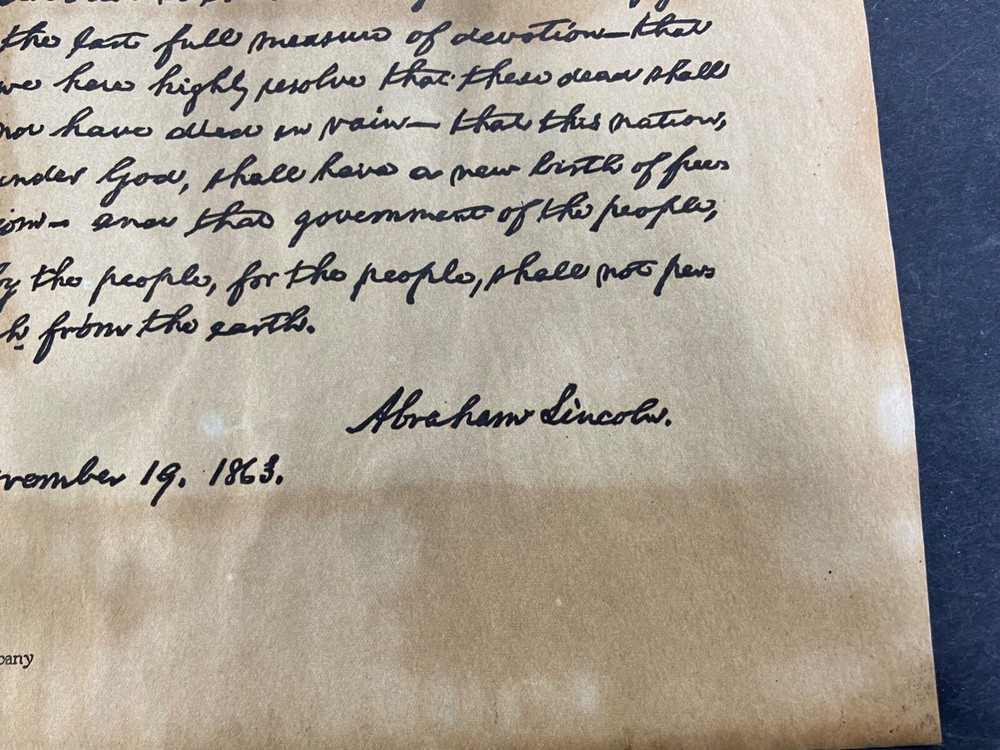 the last full measure of devotion—that
we here highly resolve that these dead shall
not have died in vain— that this nation,
under God, shall have a new birth of free
dom— and that government of the people,
by the people, for the people, shall not per
ish from the earth.
Abraham Lincoln.
vember 19. 1863.
pany